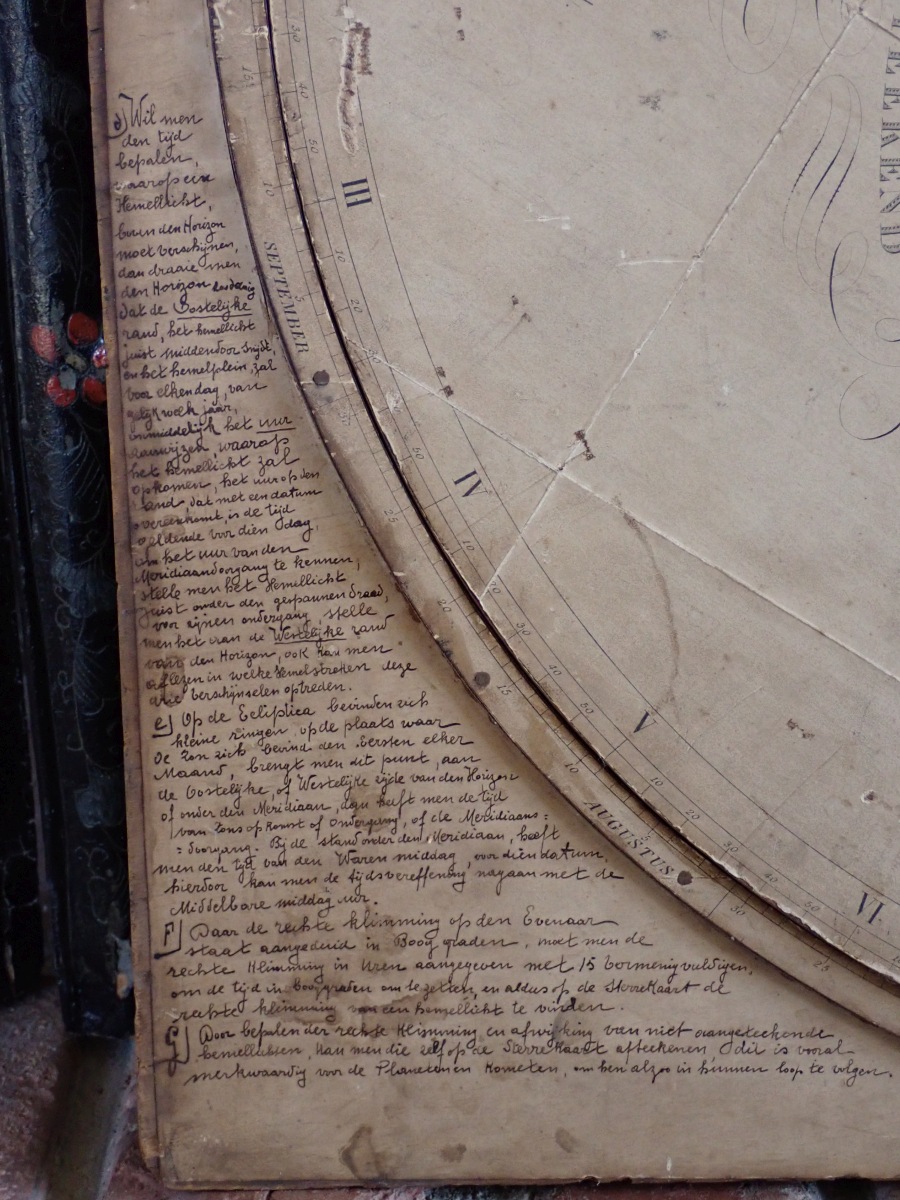 d) Wil men
den tijd
bepalen,
waarop een
Hemellicht,
boven den Horizon
moet verschijnen,
dan draaie men
den Horizon
dat de Oostelijke
rand, het hemellicht
juist middendoor snijdt,
en het hemelplein, zal
voor elken dag, van
gelijk welk jaar,
onmiddelijk het uur
aanwijzen, waarop
het hemellicht zal
opkomen, het uur op den
rand dat met een datum
overeenkomt, is de tijd
geldende voor dien dag,
om het uur van den
Meridiaandoorgang te kennen,
stelle men het Hemellicht
juist onder den gespannen draad,
voor zijnen ondergang, stelle
men het aan de Westelijke rand
van den Horizon, ook kan men
aflezen in welke Hemelstreken deze
drie verschijnselen optreden.
e) Op de Ecliptica bevinden zich
kleine ringen, op de plaats waar
de Zon zich bevind den Eersten elker
Maand, brengt men dit punt, aan
de Oostelijke, of Westelijke zijde van den Horizon
of onder den Meridiaan, dan heeft men de tijd
van Zons opkomst of Ondergang, of de Meridiaans=
=doorgang. Bij de stand onder den Meridiaan, heeft
men den tijd van den Waren middag, voor dien datum,
hierdoor kan men de tijdsvereffening nagaan met de
Middelbare middag uur.
F) Daar de rechte klimming op den Evenaar
staat aangeduid in Boog graden, moet men de
rechte Klimming in Uren aangegeven met 15 vermenigvuldigen,
om de tijd in booggraden om te zetten, en aldus op de Sterrekaart de
rechte klimming van een hemellicht te vinden.
G) Door bepalen der rechte Klimming en afwijking van niet aangeteekende
hemellichten, kan men die zelf op de Sterrekaart afteekenen, dit is vooral
merkwaardig voor de Planeten en Kometen, om hen alzoo in hunnen loop te volgen.
SEPTEMBER
AUGUSTUS
III
IV
V
VI
15
10
5
25
20
15
10
5
30
25
30
40
50
10
20
50
10
20
30
40
50
10
20
30
40
50